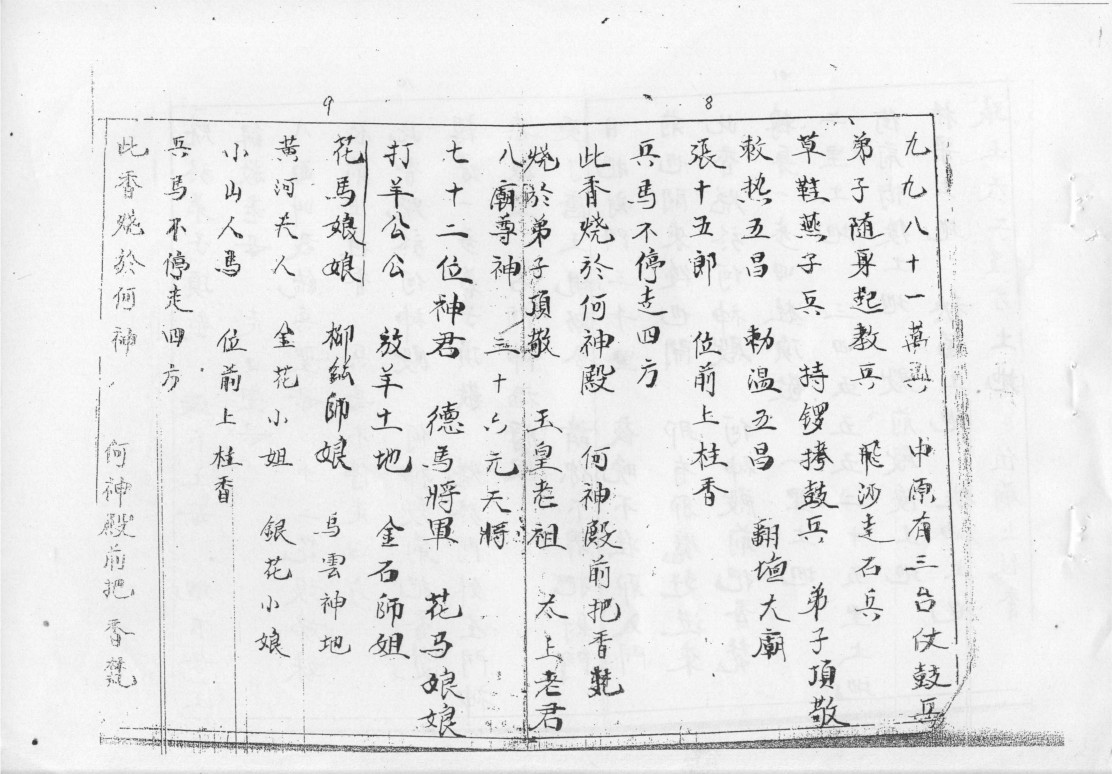 8
九九八十一萬兵 中原有三台仗鼓兵
弟子随身起教兵 飛沙走石兵
草鞋燕子兵 持鑼拷鼓兵 弟子頂敬
敕热五昌 勅温五昌 翻壇大廟
張十五郎 位前上柱香
兵馬不停走四方
此香燒於何神殿 何神殿前把香
燒於弟子頂敬 玉皇老祖 太上老君
9
八廟尊神 三十六元天將
七十二位神君 德馬將軍 花马娘娘
打羊公公 放羊土地 金石師姐
花馬娘娘 柳絲師娘 烏雲神地
黄河夫人 金花小姐 銀花小娘
小山人馬 位前上柱香
兵馬不停走四方
此香燒於何神 何神殿前把香